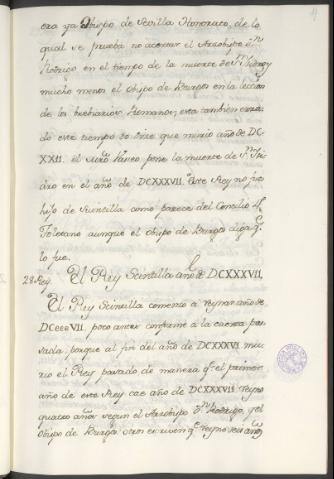 era ya Obispo de Sevilla Honorato, de lo
qual se prueba no acertar el Arzobispo Dn
Rodrigo en el tiempo de la muerte de Sn Isidro y
mucho menos el Obispo de Burgos en la
de los breviarios Romanos, esta tambien errado
do este tiempo se dice que murio año de DC
XXII. el pone la muerte de Sn Isi
dro en el año de DCXXXVII. este Rey no fue
hijo de Suintilla como parece del Concilio
Toletano aunque el Obispo de Burgos diga qe
lo fue.
28. Rey. El Rey Scintilla año de DCXXXVII,
El Rey Scintilla comenzo a reynar año de
DCCCVII, poco antes conforme a la cuenta pas
sada; porque al fin del año de DCXXXVI mu
rio el Rey pasado de manera qe el primer
año de este Rey cae año de DCXXXVII reyno
quatro años segun el Arzobispo Dn Rodrigo, y el
Obispo de Burgos otros escriven qe reyno seis años